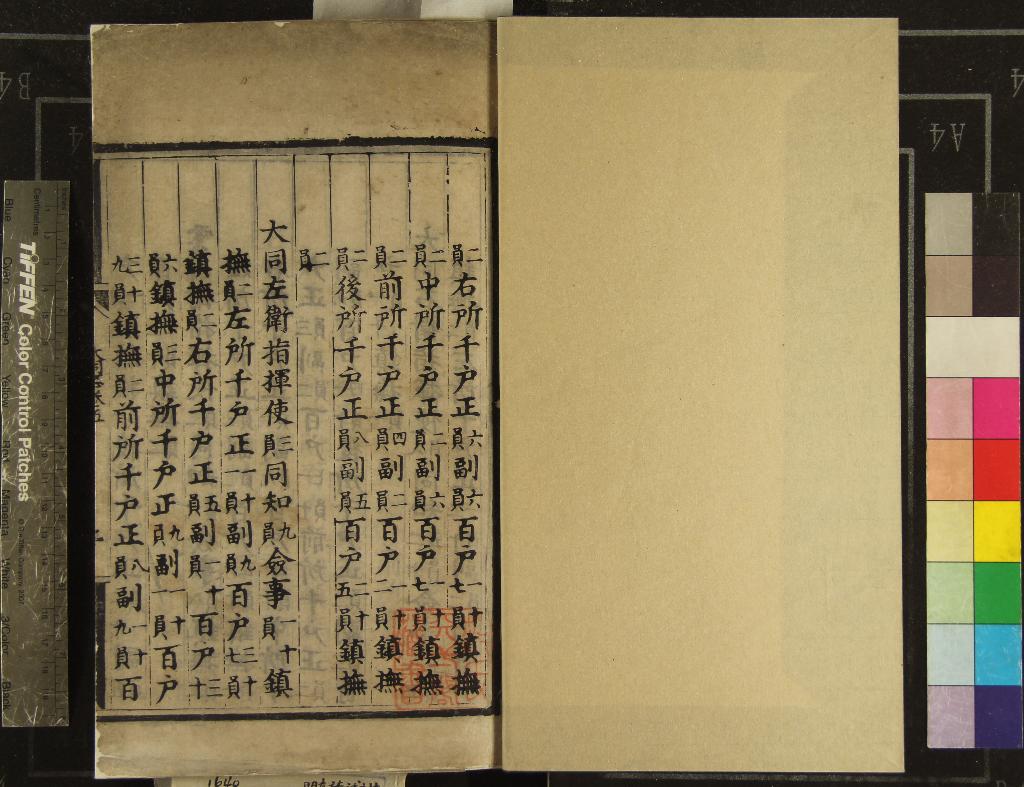 二員右所千户正六員副六員百户一十七員鎮撫
二員中所千户正二員副六員百户一十七員鎮撫
二員前所千户正四員副二員百户一十二員鎮撫
二員後所千户正八員副五員百户二十五員鎮撫
二員
大同左衛指揮使三員同知九員僉事一十員鎮
撫二員左所千户正一十一員副九員百户三十七員
鎮撫二員右所千户正五員副一十員百户三十
六員鎮撫三員中所千户正九員副一十一員百户
三十九員鎮撫二員前所千户正八員副一十九員百
TIFFEN Color Control Patches
Centimetres
Blue Cyan Green Yellow Red Magenta White 3/Color Black
B4
A4